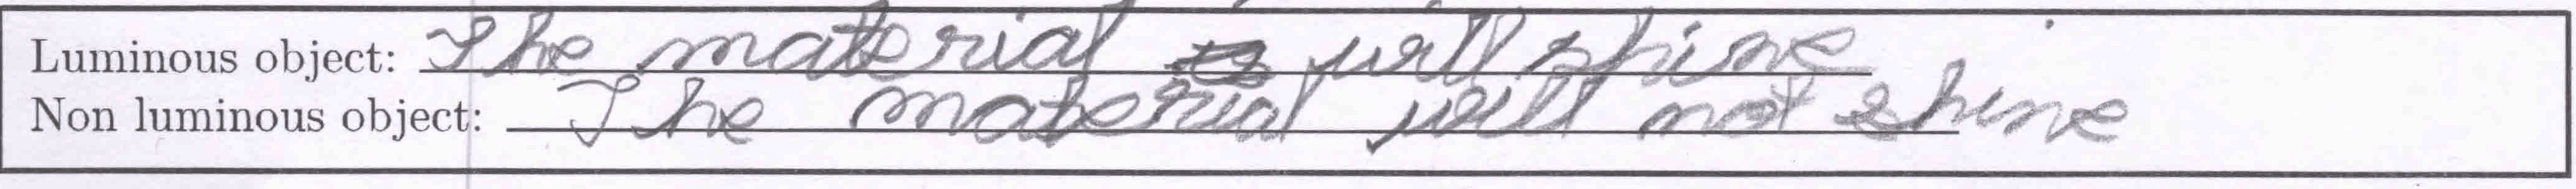 Luminous object: The material will shine
Non luminous object: The material will not shine